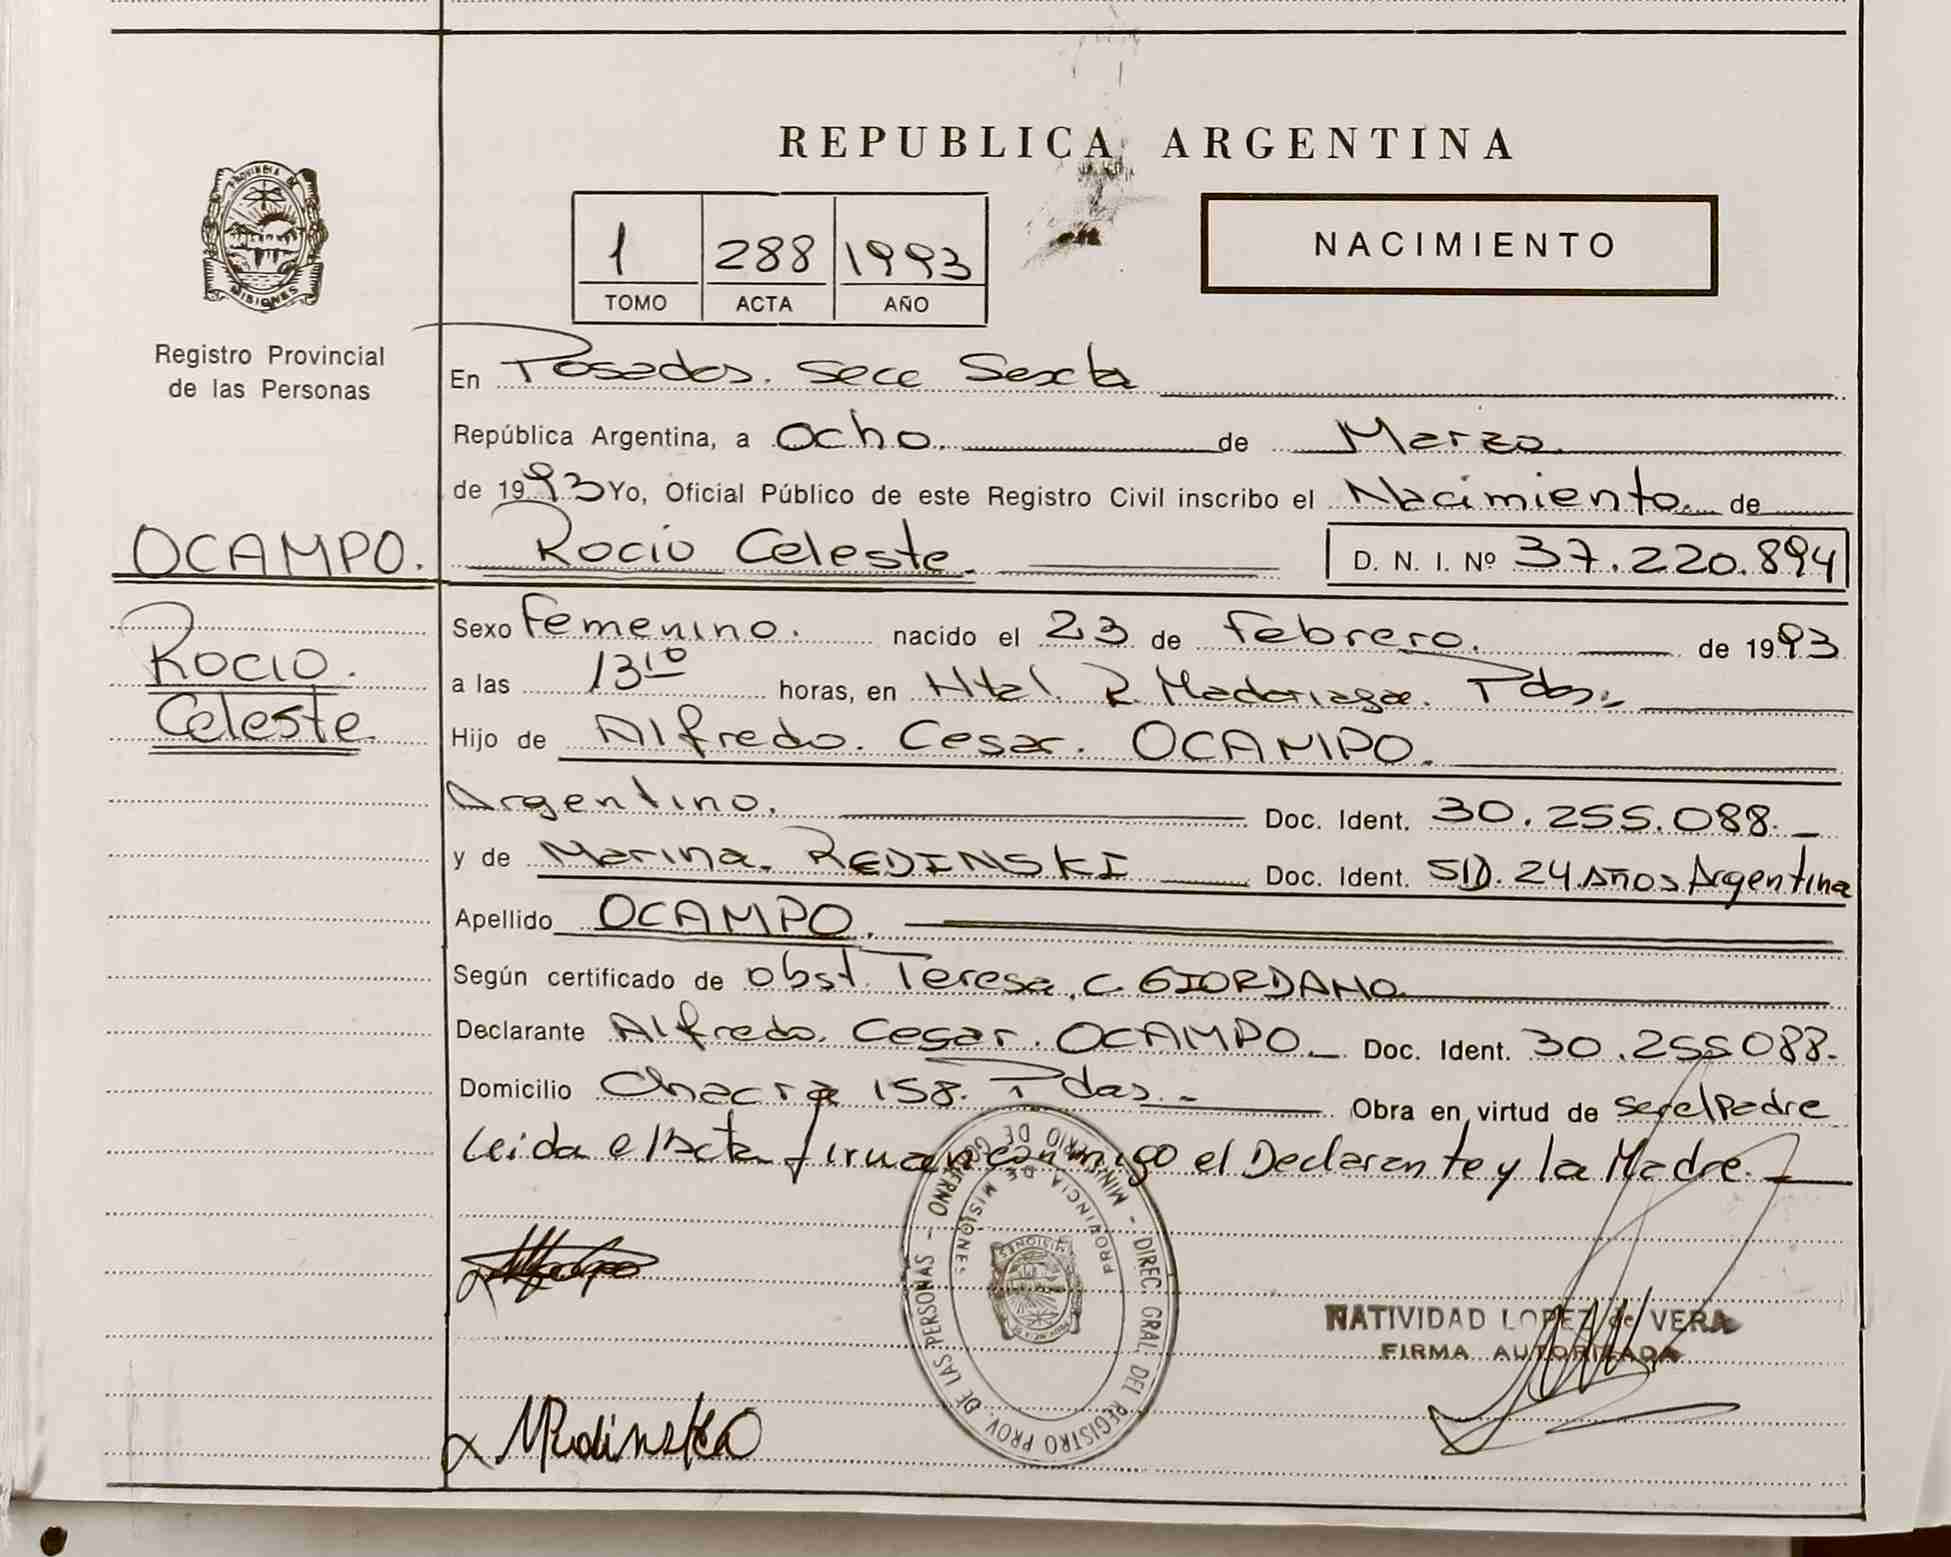 REPUBLICA ARGENTINA
PROVINCIA DE
MISIONES
Registro Provincial
de las Personas
1 288 1993
TOMO ACTA AÑO
NACIMIENTO
En Posadas. Secc Sexta
República Argentina, a Ocho. de Marzo
de 1993 Yo, Oficial Público de este Registro Civil inscribo el Nacimiento de
OCAMPO. Rocio Celeste. D. N. I. Nº 37.220.894
Rocio.
Celeste
Sexo Femenino. nacido el 23 de Febrero. de 1993
a las 13¹⁰ horas, en Htal. R. Madariaga. Pdas.
Hijo de Alfredo. Cesar. OCAMPO.
Argentino. Doc. Ident. 30.255.088.
y de Marina. REDINSKI Doc. Ident. S/D. 24 Años Argentina
Apellido OCAMPO.
Según certificado de obst. Teresa. C. GIORDANO
Declarante Alfredo. Cesar. OCAMPO Doc. Ident. 30.255088.
Domicilio Chacra 158. Pdas. Obra en virtud de ser el Padre
Leida el Acta firman conmigo el Declarante y la Madre.
MINISTERIO DE GOBIERNO - DIREC. GRAL. DEL REGISTRO PROV. DE LAS PERSONAS -
PROVINCIA DE MISIONES
NATIVIDAD LOPEZ de VERA
FIRMA AUTORIZADA